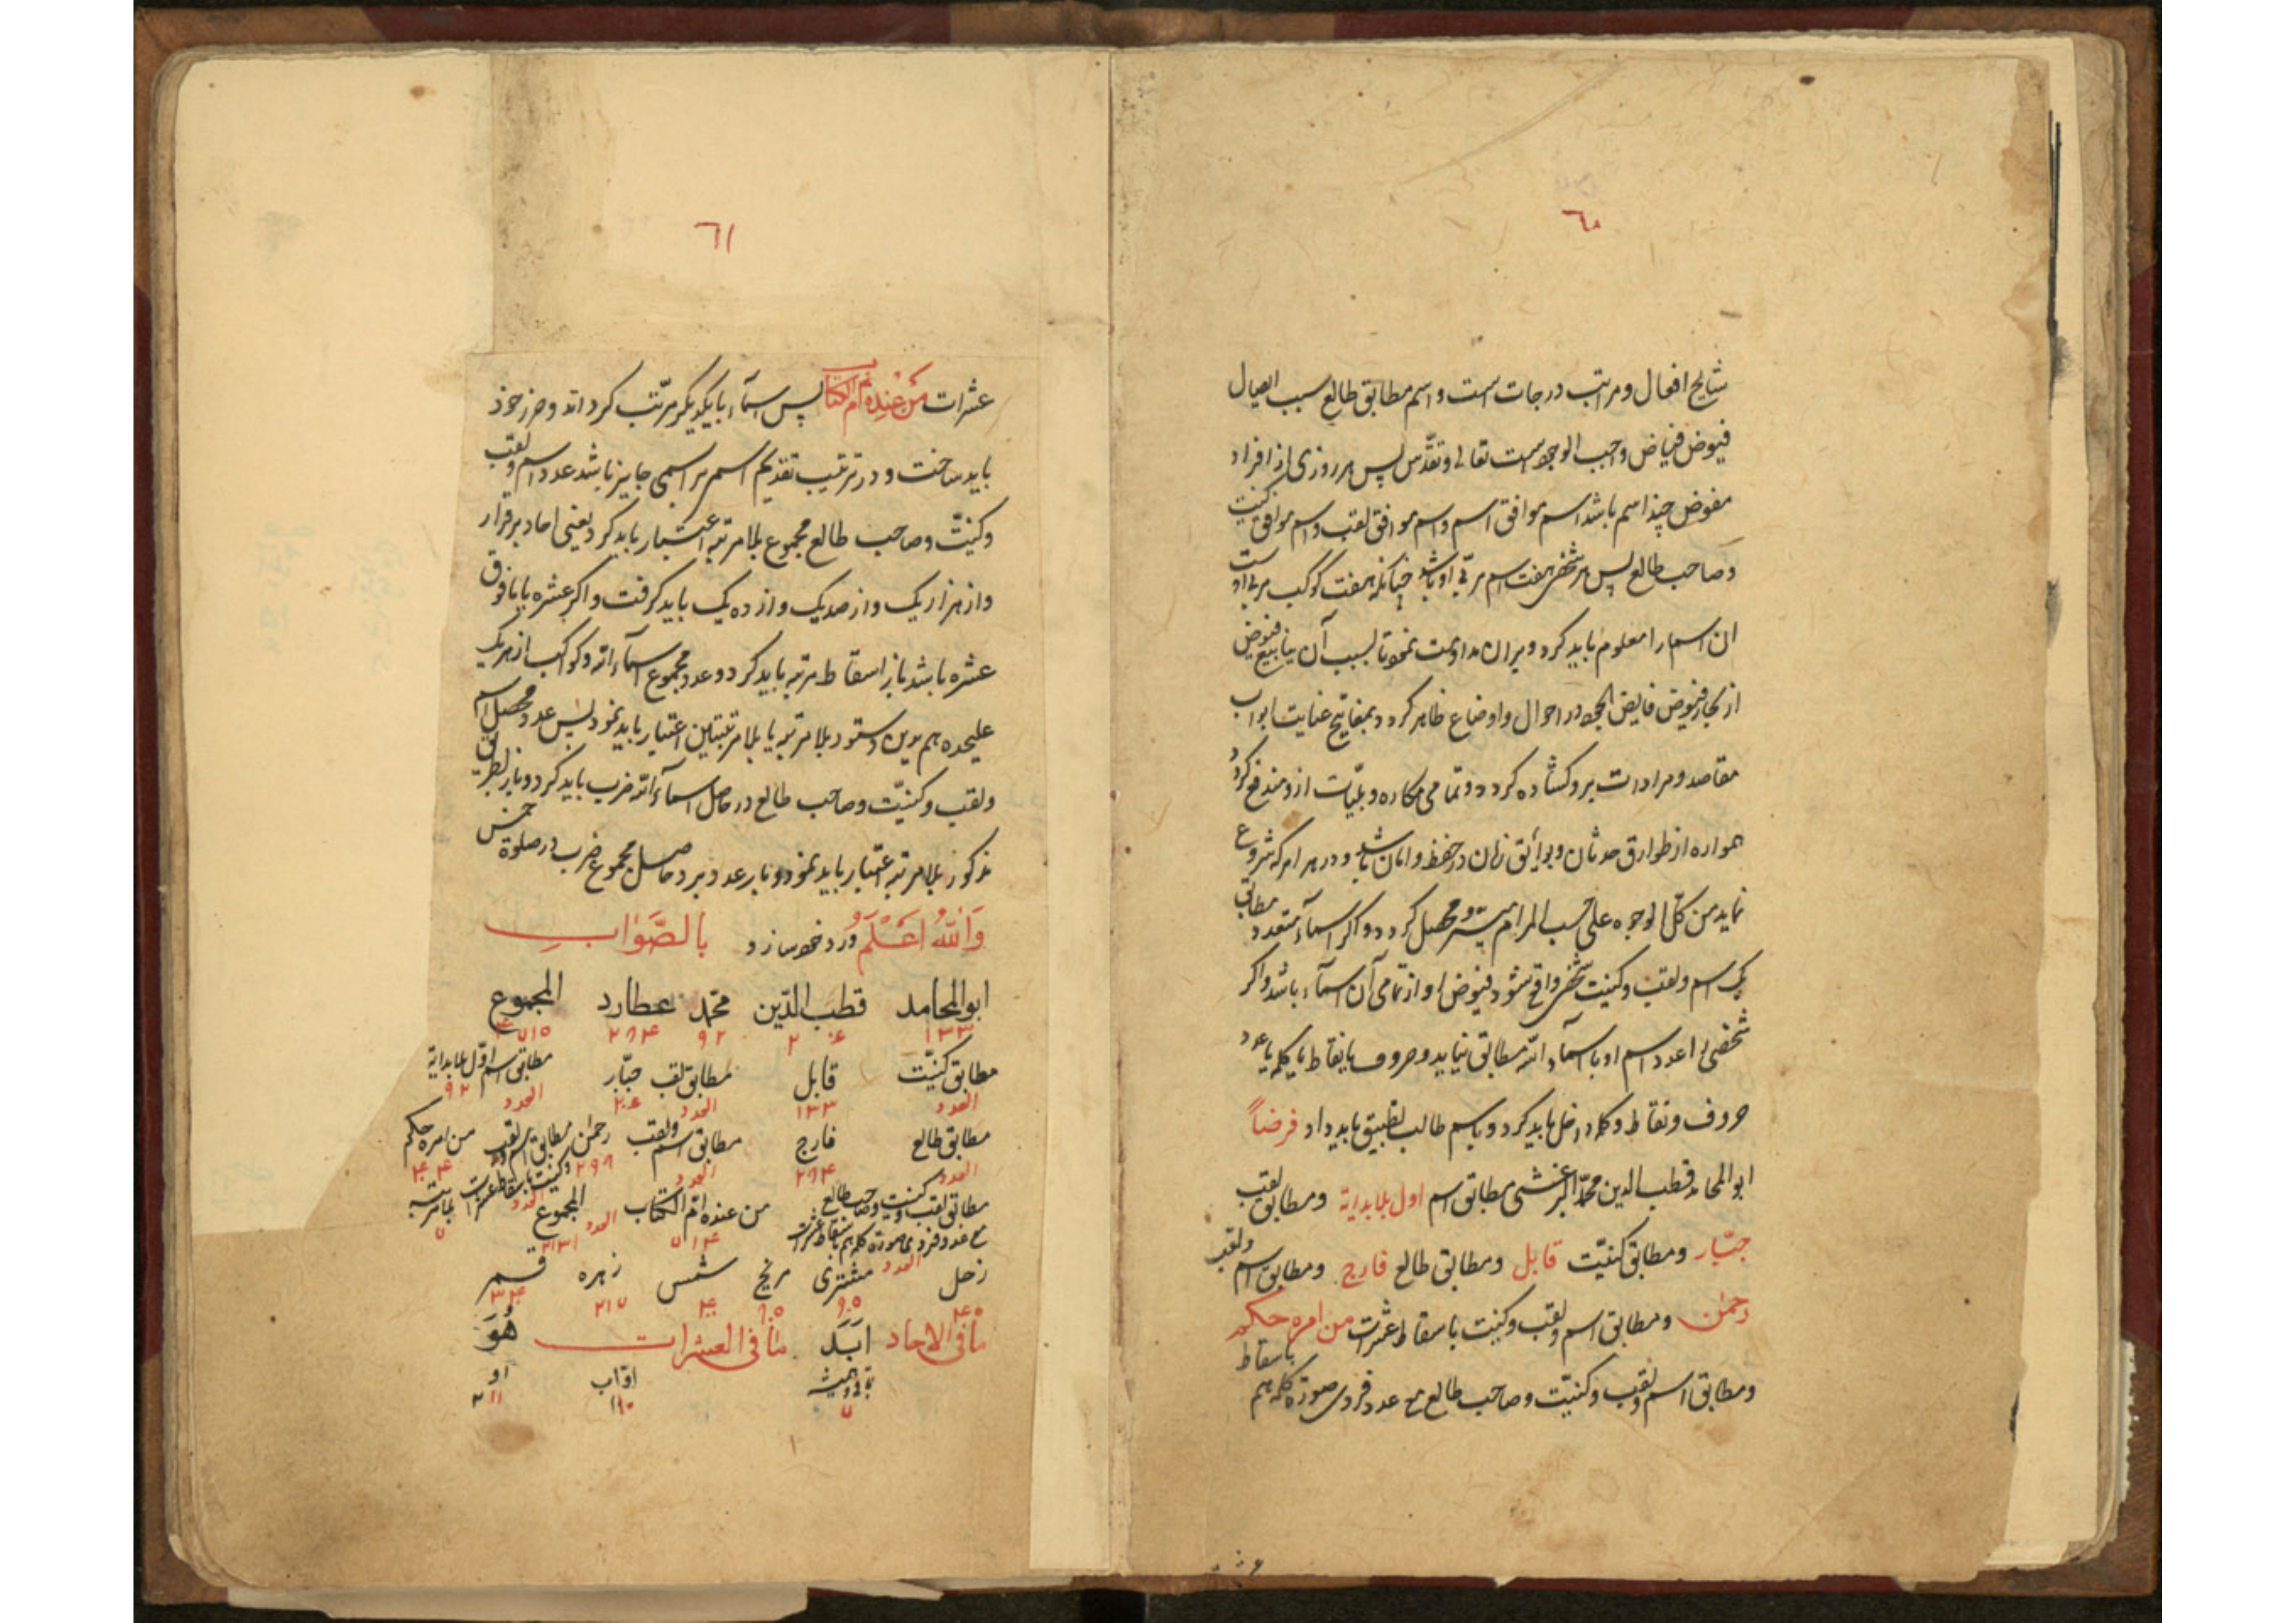 ٦٠
نتایج افعال و مراتب درجات است و اسم مطابق طالع سبب ایصال
فیوض فیاض واجب الوجود است تعالی و تقدّس پس هر روزی از افراد
مفوض چند اسم باشد اسم موافق اسم و اسم موافق لقب و اسم موافق کنیت
و صاحب طالع پس هر شخص هفت اسم مربّی او باشد چنانکه هفت کوکب مربی اوست
این اسما را معلوم باید کرد و بران مداومت نمود تا بسبب آن ینابیع فیوض
از بحار فیوض فایض الجود در احوال و اوضاع ظاهر کردد و بمفاتیح عنایت ابواب
مقاصد و مرادات برو کشاده کردد و تمامی مکاره و بلیّات ازو مندفع کردد
همواره از طوارق حدثان و بوایق زمان در حفظ و امان باشد و در هر امر که شروع
نماید من کلّ الوجوه علی حسب المرام میسّر و محصل کردد و اکر اسمآء متعدد مطابق
یک اسم و لقب و کنیت شخصی واقع شود فیوض او از تمامی آن اسمآء باشد و اکر
شخصی را عدد اسم او با اسمآء اللّه مطابق نیاید و حروف یا نقاط یا کلمه یا عدد
حروف و نقاط و کلمه داخل باید کرد و باسم طالب تطبیق باید داد فرضاً
ابو المحامد قطب الدین محمّد اکبر مطابق اسم اول بلا بدایة و مطابق لقب
جبّار و مطابق کنیّت قابل و مطابق طالع فارج و مطابق اسم و لقب
رحمن و مطابق اسم و لقب و کنیت باسقاط عشرات من امره حکم
و مطابق اسم و لقب و کنیّت و صاحب طالع مع عدد فردی صورة کله هم باسقاط
٦١
عشرات من عنده ام الکتاب پس اسمآء با یکدیکر مرتّب کردانند و حرز خود
باید ساخت و در ترتیب تقدیم اسم بر اسمی جایز باشد عدد اسم و لقب
و کنیّت و صاحب طالع مجموع بلا مرتبه اعتبار باید کرد یعنی احاد برقرار
و از هزار یک و از صد یک و از ده یک باید کرفت و اکر عشره یا مافوق
عشره باشد باز اسقاط مرتبه باید کرد و عدد مجموع اسمآء اللّه و کواکب از هر یک
علیحده هم بدین دستور بلا مرتبه یا بلا مرتبتین اعتبار باید نمود پس عدد محصل اسم
و لقب و کنیّت و صاحب طالع در حاصل اسمآء اللّه ضرب باید کرد و باز بطریق
مذکور بلا مرتبه اعتبار باید نمود و بار عدد برد حاصل مجموع ضرب در صلوة خمس
وَاللّٰهُ اَعْلَمُ ورد خود سازد بالصَّوَابِ
ابو المحامد قطب الدّین محمّد عطارد المجموع
۱۳۳ ۲۰۶ ۹۲ ۲۸۴
مطابق کنیّت قابل مطابق لقب جبّار مطابق اسم اوّل بلا بدایة
العدد ۱۳۳ العدد ۲۰۶ العدد ۹۲
مطابق طالع فارج مطابق اسم و لقب رحمن مطابق اسم و لقب و کنیت باسقاط عشرات من امره حکم
العدد ۲۸۴ العدد ۲۹۸ العدد
مطابق لقب و کنیت و صاحب طالع من عنده امّ الکتاب المجموع بلا مرتبه
مع عدد فردی صورة کله هم باسقاط عشرات العدد
زحل مشتری مریخ شمس زهره قمر
۴۵ ۹۵۰ ۸۵۰ ۴۰۰ ۲۱۷ ۳۴۰
ما فی الاحاد اَبَدَ ما فی العشرات هُوَ
اوّاب او
۷